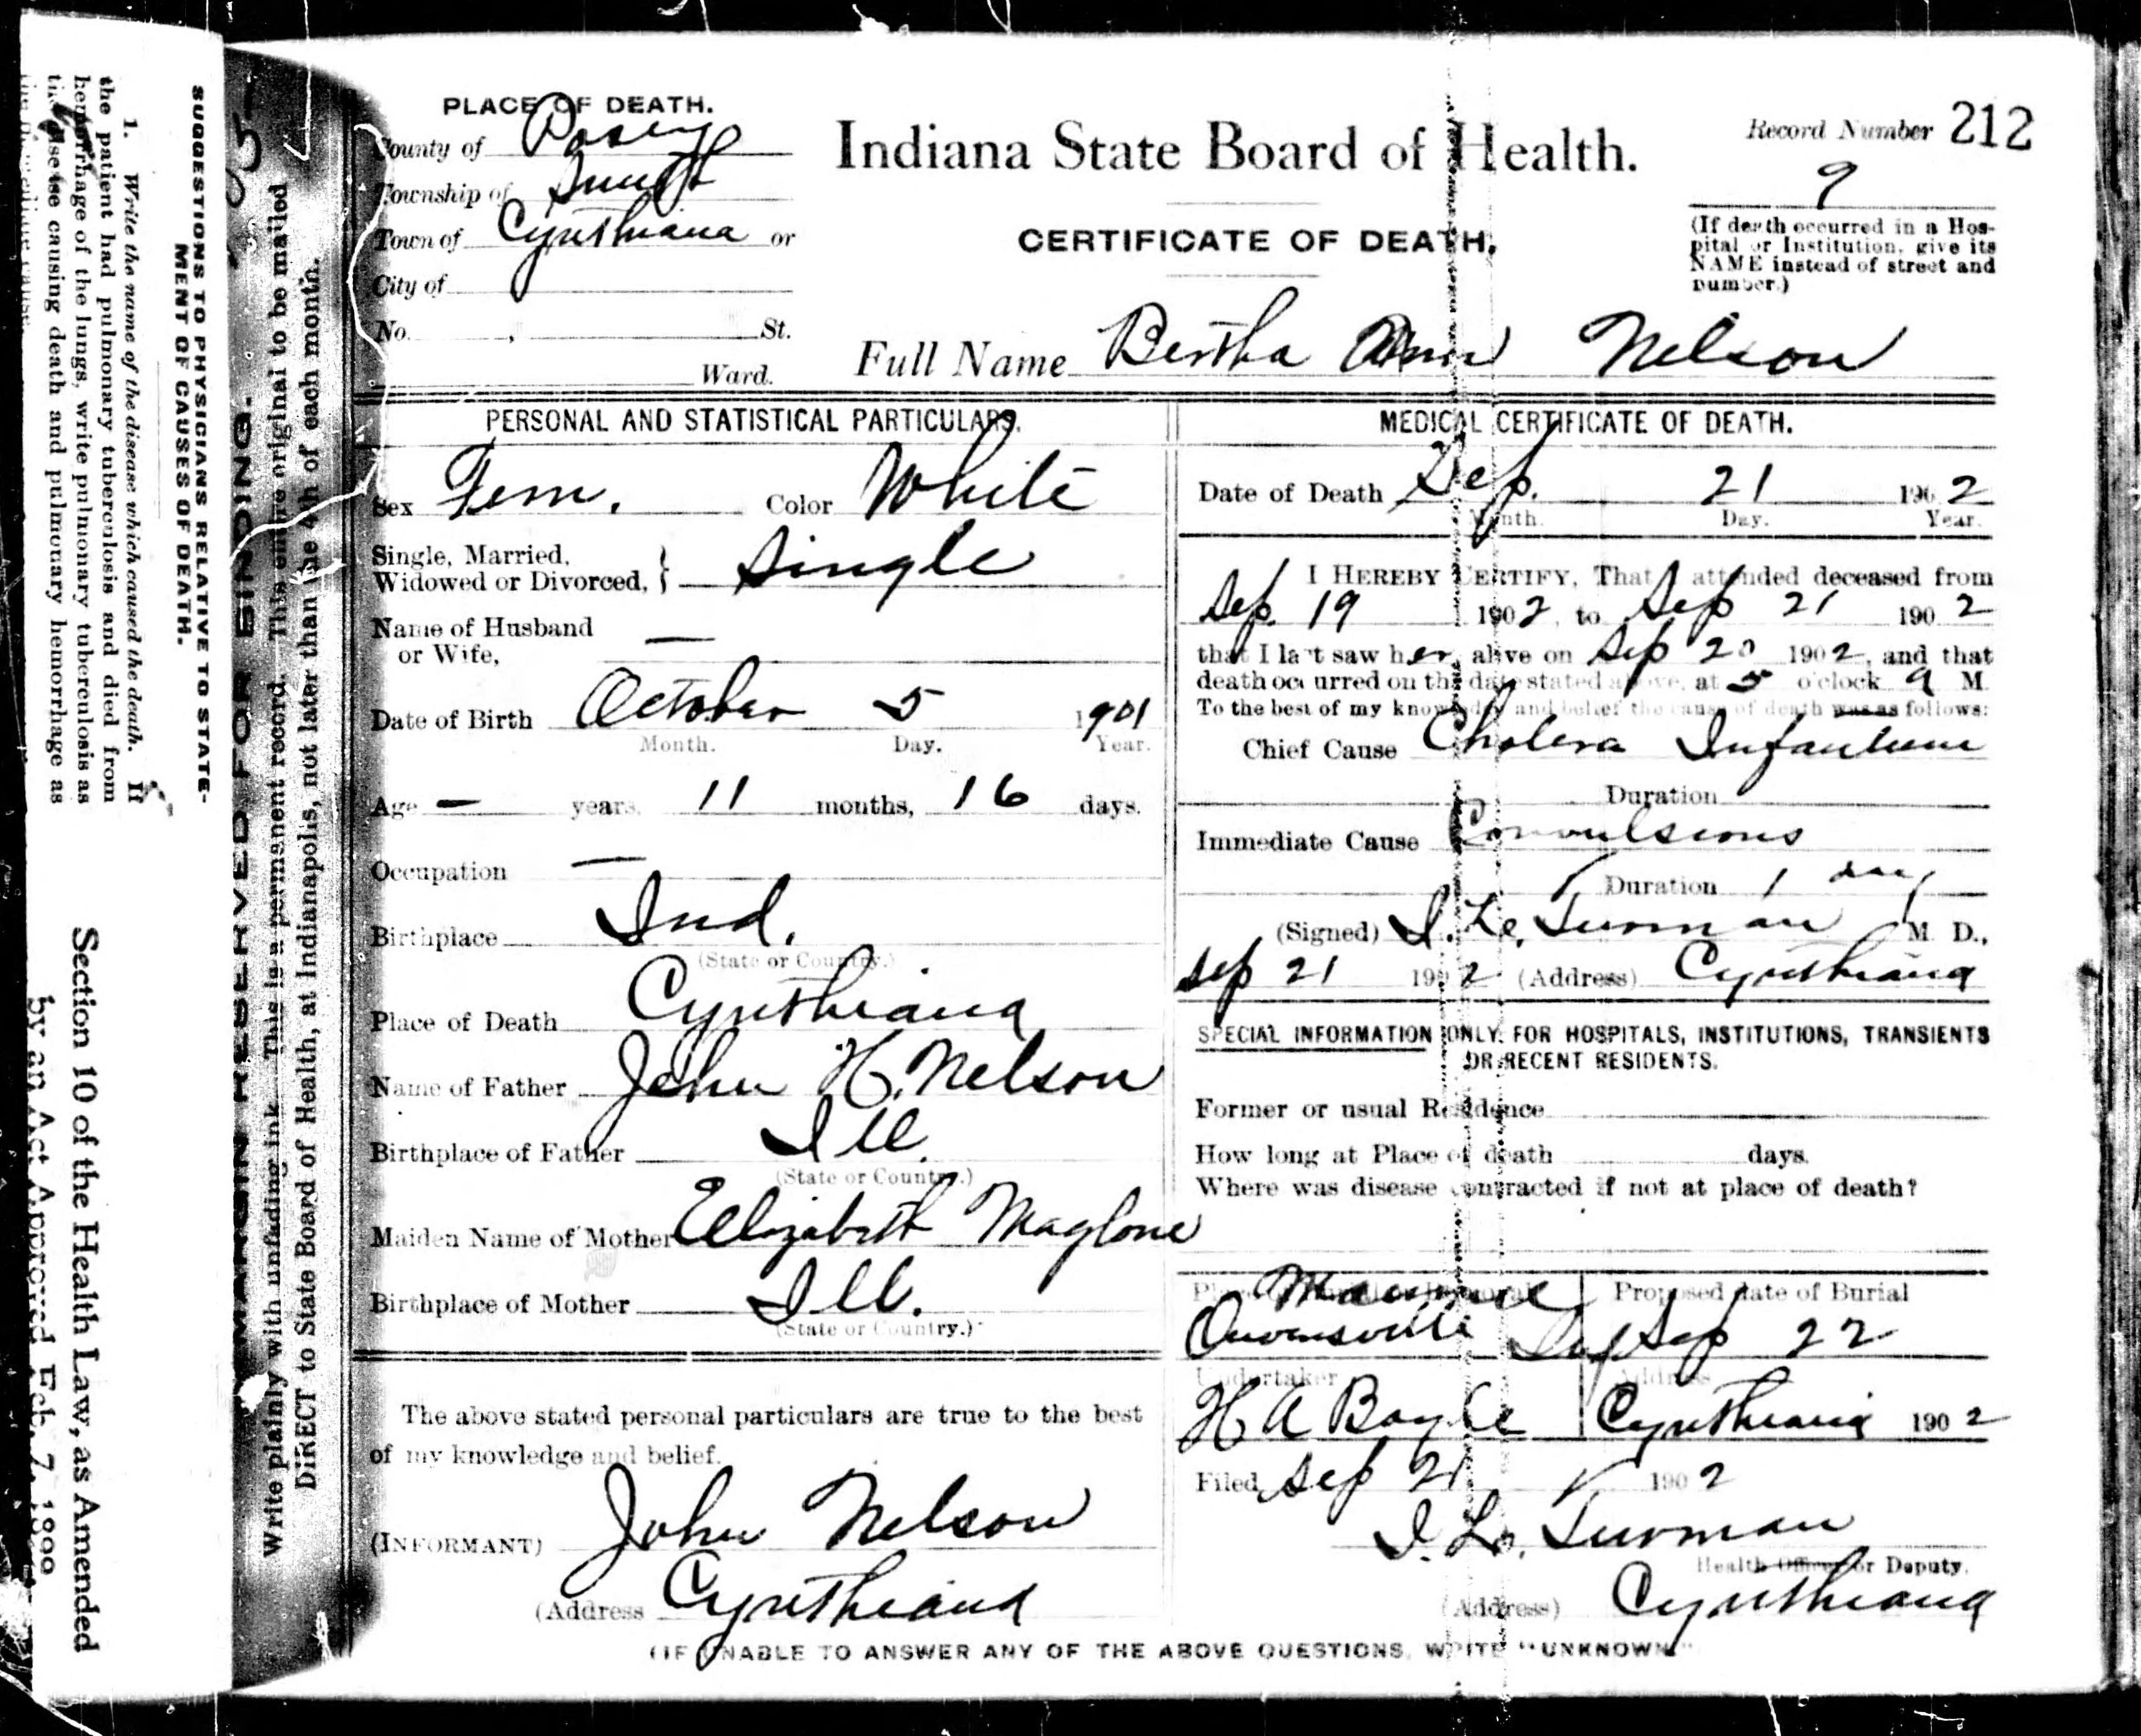 SUGGESTIONS TO PHYSICIANS RELATIVE TO STATE-
MENT OF CAUSES OF DEATH.
1. Write the name of the disease which caused the death. If
the patient had pulmonary tuberculosis and died from
hemorrhage of the lungs, write pulmonary tuberculosis as
the disease causing death and pulmonary hemorrhage as
Section 10 of the Health Law, as Amended
by an Act Approved Feb. 7, 1899
MARGIN RESERVED FOR BINDING.
Write plainly with unfading ink. This is a permanent record. This entire original to be mailed
DIRECT to State Board of Health, at Indianapolis, not later than the 4th of each month.
PLACE OF DEATH.
County of Posey
Township of Smith
Town of Cynthiana or
City of
No. , St.
Ward.
Indiana State Board of Health.
CERTIFICATE OF DEATH.
Record Number 212
9
(If death occurred in a Hos-
pital or Institution, give its
NAME instead of street and
number.)
Full Name Bertha Ann Nelson
PERSONAL AND STATISTICAL PARTICULARS.
Sex Fem. Color White
Single, Married,
Widowed or Divorced, } Single
Name of Husband
or Wife, —
Date of Birth October 5 1901
Month. Day. Year.
Age — years, 11 months, 16 days.
Occupation —
Birthplace Ind.
(State or Country.)
Place of Death Cynthiana
Name of Father John H. Nelson
Birthplace of Father Ill.
(State or Country.)
Maiden Name of Mother Elizabeth Maglone
Birthplace of Mother Ill.
(State or Country.)
The above stated personal particulars are true to the best
of my knowledge and belief.
(INFORMANT) John Nelson
(Address Cynthiana
MEDICAL CERTIFICATE OF DEATH.
Date of Death Sep. 21 1902
Month. Day. Year.
I HEREBY CERTIFY, That I attended deceased from
Sep. 19 1902, to Sep 21 1902
that I last saw her alive on Sep 20 1902, and that
death occurred on the date stated above, at 5 o'clock a M.
To the best of my knowledge and belief the cause of death was as follows:
Chief Cause Cholera Infantum
Duration
Immediate Cause Convulsions
Duration 1 day
(Signed) I. L. Turman M. D.,
Sep 21 1902 (Address) Cynthiana
SPECIAL INFORMATION ONLY FOR HOSPITALS, INSTITUTIONS, TRANSIENTS
OR RECENT RESIDENTS.
Former or usual Residence
How long at Place of death days.
Where was disease contracted if not at place of death?
Proposed date of Burial
Owensville Sep 22
Undertaker Address
H A Boyle Cynthiana 1902
Filed Sep 21 1902
I. L. Turman
Health Officer or Deputy.
(Address) Cynthiana
(IF UNABLE TO ANSWER ANY OF THE ABOVE QUESTIONS, WRITE "UNKNOWN."